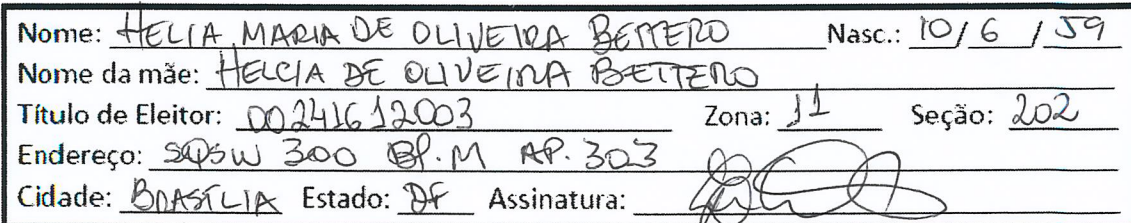 Nome: HELIA MARIA DE OLIVEIRA BETTERO Nasc.: 10/6/59
Nome da mãe: HELCIA DE OLIVEIRA BETTERO
Título de Eleitor: 00241612003 Zona: 11 Seção: 202
Endereço: SQSW 300 Bl. M AP. 303
Cidade: BRASÍLIA Estado: DF Assinatura: